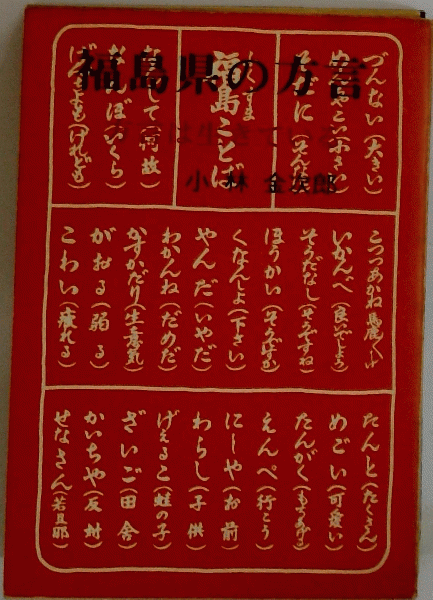 福島県の方言
方言は生きている
小林金次郎
づんない(大きい)
福島ことば
ばんぼ(いくら)
げんちょも(けれども)
いかんべ(良いでしょう)
そうだなし(そうですね)
ほうかい(そうですか)
くなんしょ(下さい)
やんだ(いやだ)
わかんね(だめだ)
かすかだり(生意気)
がおる(弱る)
こわい(疲れる)
たんと(たくさん)
めごい(可愛い)
たんがく(もちあげる)
えんぺ(行こう)
にしや(お前)
わらし(子供)
げえるこ(蛙の子)
ざいご(田舎)
かいちゃ(反対)
せなさん(若旦那)